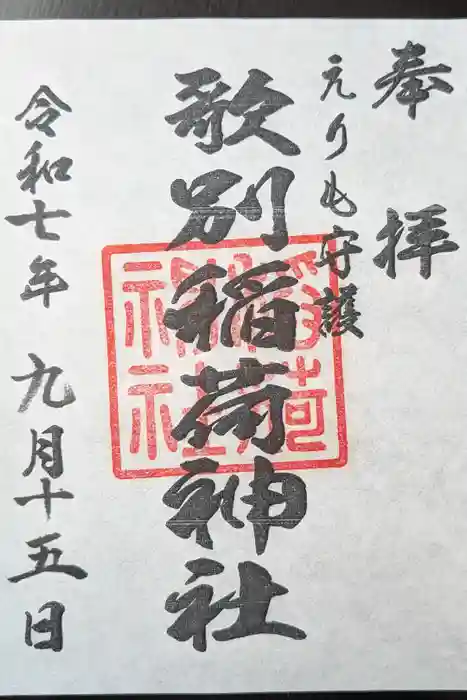 奉拝
えりも守護
歌別稲荷神社
令和七年 九月十五日
稲荷神社